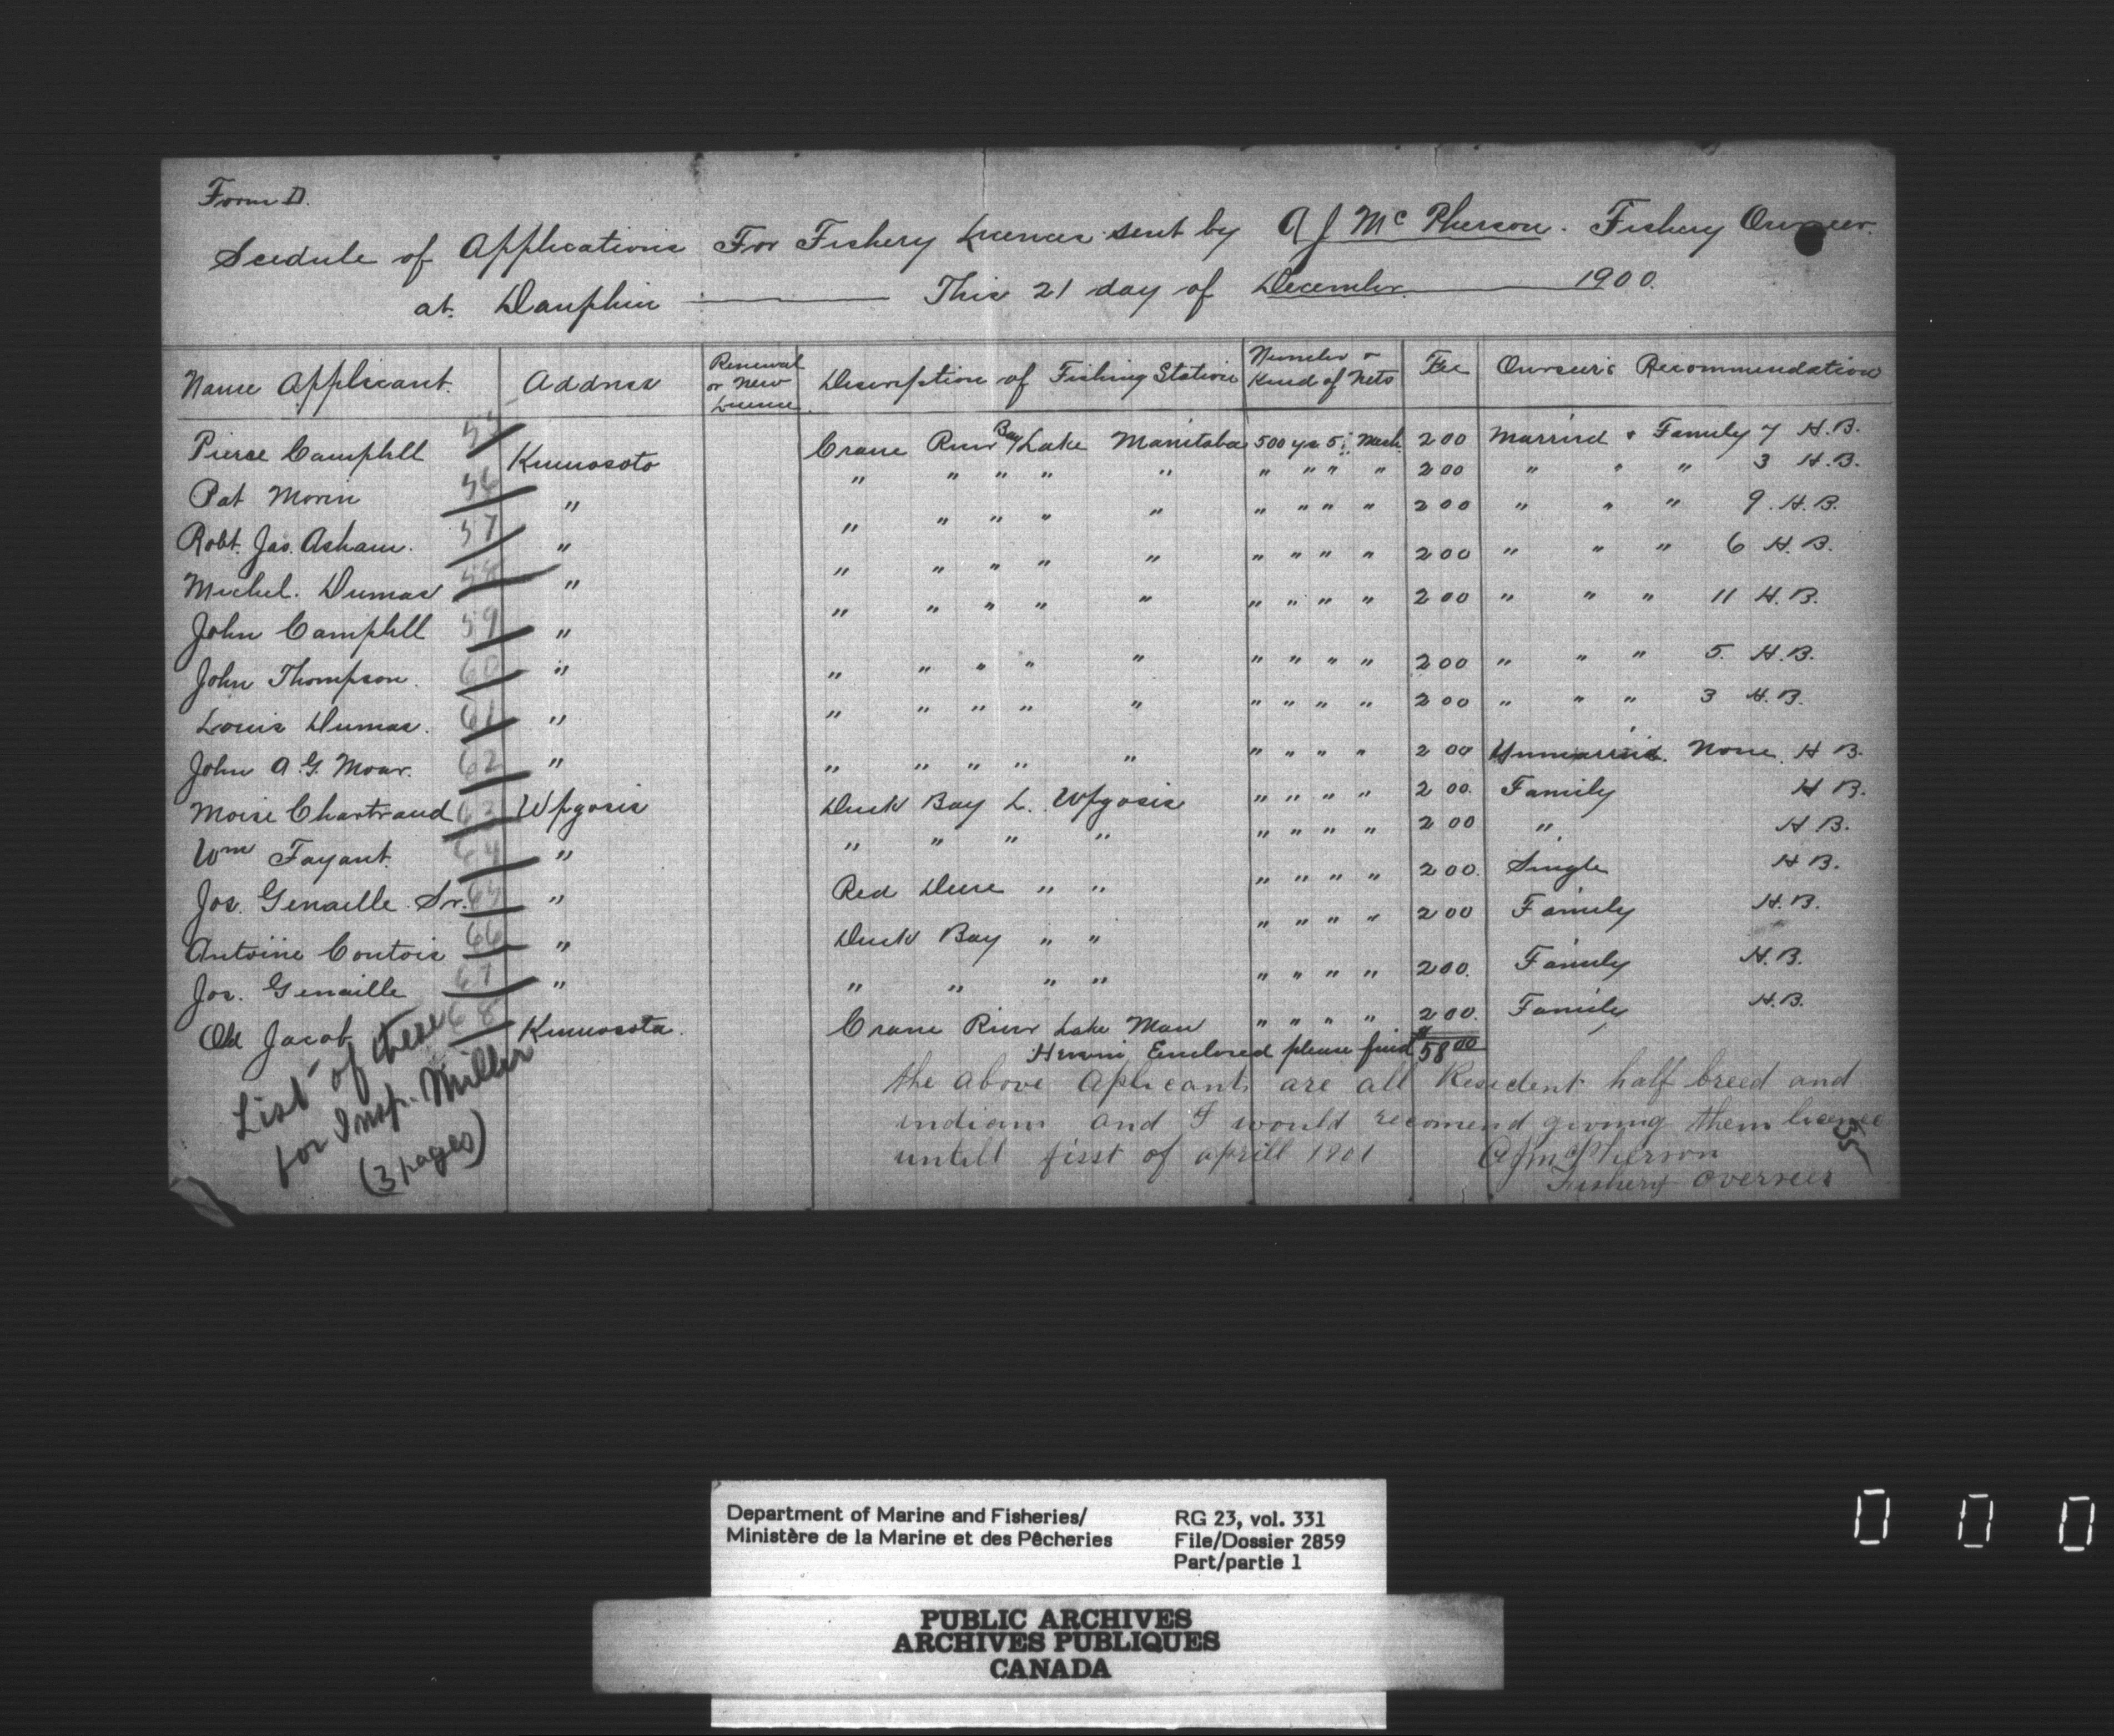 Form D.
Scedule of Applications For Fishery Licences sent by A J McPherson. Fishery Overseer.
at Dauphin This 21 day of December 1900.
Name Applicant. Address Renewal or New Licence. Description of Fishing Station Number & Kind of Nets Fee Overseer's Recommendation
Pierce Campbell 55 Kinnosoto Crane River Bay Lake Manitoba 500 yds 5¼ Mesh 2 00 Married & Family 7 H.B.
Pat Morin 56 " " " " " " " " " " 2 00 " " " 3 H.B.
Robt. Jas. Asham. 57 " " " " " " " " " " 2 00 " " " 9. H.B.
Michel. Dumas 58 " " " " " " " " " " 2 00 " " " 6 H.B.
John Campbell 59 " " " " " " " " " " 2 00 " " " 11 H.B.
John Thompson. 60 " " " " " " " " " " 2 00 " " " 5. H.B.
Louis Dumas. 61 " " " " " " " " " " 2 00 " " " 3 H.B.
John A.G. Moar. 62 " " " " " " " " " " 2 00 Unmarried. None. H B.
Moise Chartrand 63 Wpgosis Duck Bay L. Wpgosis " " " " 2 00. Family H B.
Wm Fayant. 64 " " " " " " " " " 2 00 " H B.
Jos. Genaille Sr. 65 " Red Deere " " " " " " 2 00. Single H B.
Antoine Coutois 66 " Duck Bay " " " " " " 2 00 Family H.B.
Jos. Genaille 67 " " " " " " " " " 2 00. Family H.B.
Old Jacob 68 Kinnosota. Crane River Lake Man " " " " 2 00. Family H.B.
Herein Enclosed please find $58 00
the above aplicants are all Resident half breed and
indians and I would recomend giving them licence
untill first of aprill 1901 A J McPherson
Fishery overseer
List of these
for Insp. Miller
(3 pages)
35
Department of Marine and Fisheries/
Ministère de la Marine et des Pêcheries
RG 23, vol. 331
File/Dossier 2859
Part/partie 1
PUBLIC ARCHIVES
ARCHIVES PUBLIQUES
CANADA
0 0 0